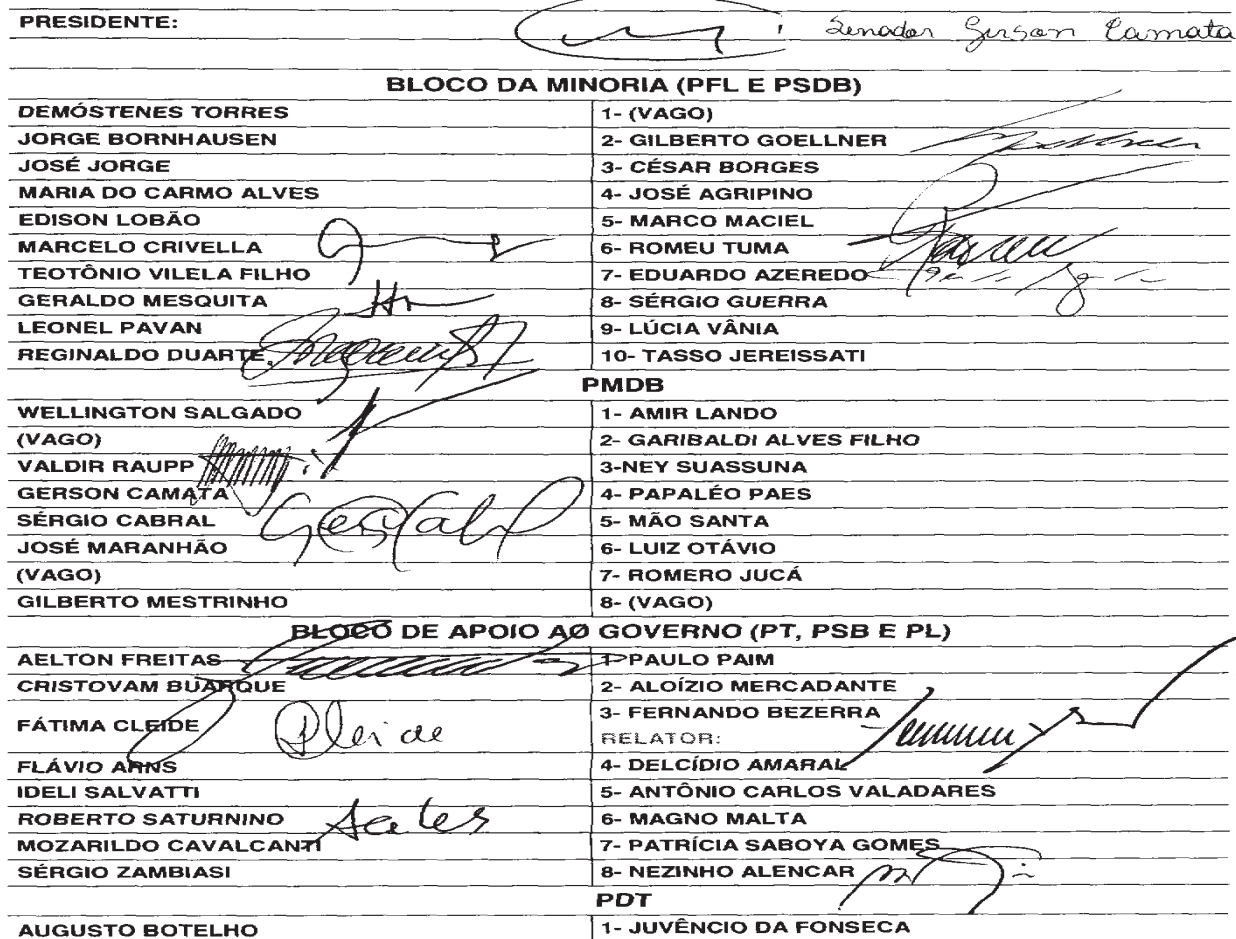 PRESIDENTE: Senador Gerson Camata
BLOCO DA MINORIA (PFL E PSDB)
DEMÓSTENES TORRES 1- (VAGO)
JORGE BORNHAUSEN 2- GILBERTO GOELLNER
JOSÉ JORGE 3- CÉSAR BORGES
MARIA DO CARMO ALVES 4- JOSÉ AGRIPINO
EDISON LOBÃO 5- MARCO MACIEL
MARCELO CRIVELLA 6- ROMEU TUMA
TEOTÔNIO VILELA FILHO 7- EDUARDO AZEREDO
GERALDO MESQUITA 8- SÉRGIO GUERRA
LEONEL PAVAN 9- LÚCIA VÂNIA
REGINALDO DUARTE 10- TASSO JEREISSATI
PMDB
WELLINGTON SALGADO 1- AMIR LANDO
(VAGO) 2- GARIBALDI ALVES FILHO
VALDIR RAUPP 3-NEY SUASSUNA
GERSON CAMATA 4- PAPALÉO PAES
SÉRGIO CABRAL 5- MÃO SANTA
JOSÉ MARANHÃO 6- LUIZ OTÁVIO
(VAGO) 7- ROMERO JUCÁ
GILBERTO MESTRINHO 8- (VAGO)
BLOCO DE APOIO AO GOVERNO (PT, PSB E PL)
AELTON FREITAS 1- PAULO PAIM
CRISTOVAM BUARQUE 2- ALOÍZIO MERCADANTE
FÁTIMA CLEIDE 3- FERNANDO BEZERRA
RELATOR:
FLÁVIO ARNS 4- DELCÍDIO AMARAL
IDELI SALVATTI 5- ANTÔNIO CARLOS VALADARES
ROBERTO SATURNINO 6- MAGNO MALTA
MOZARILDO CAVALCANTI 7- PATRÍCIA SABOYA GOMES
SÉRGIO ZAMBIASI 8- NEZINHO ALENCAR
PDT
AUGUSTO BOTELHO 1- JUVÊNCIO DA FONSECA